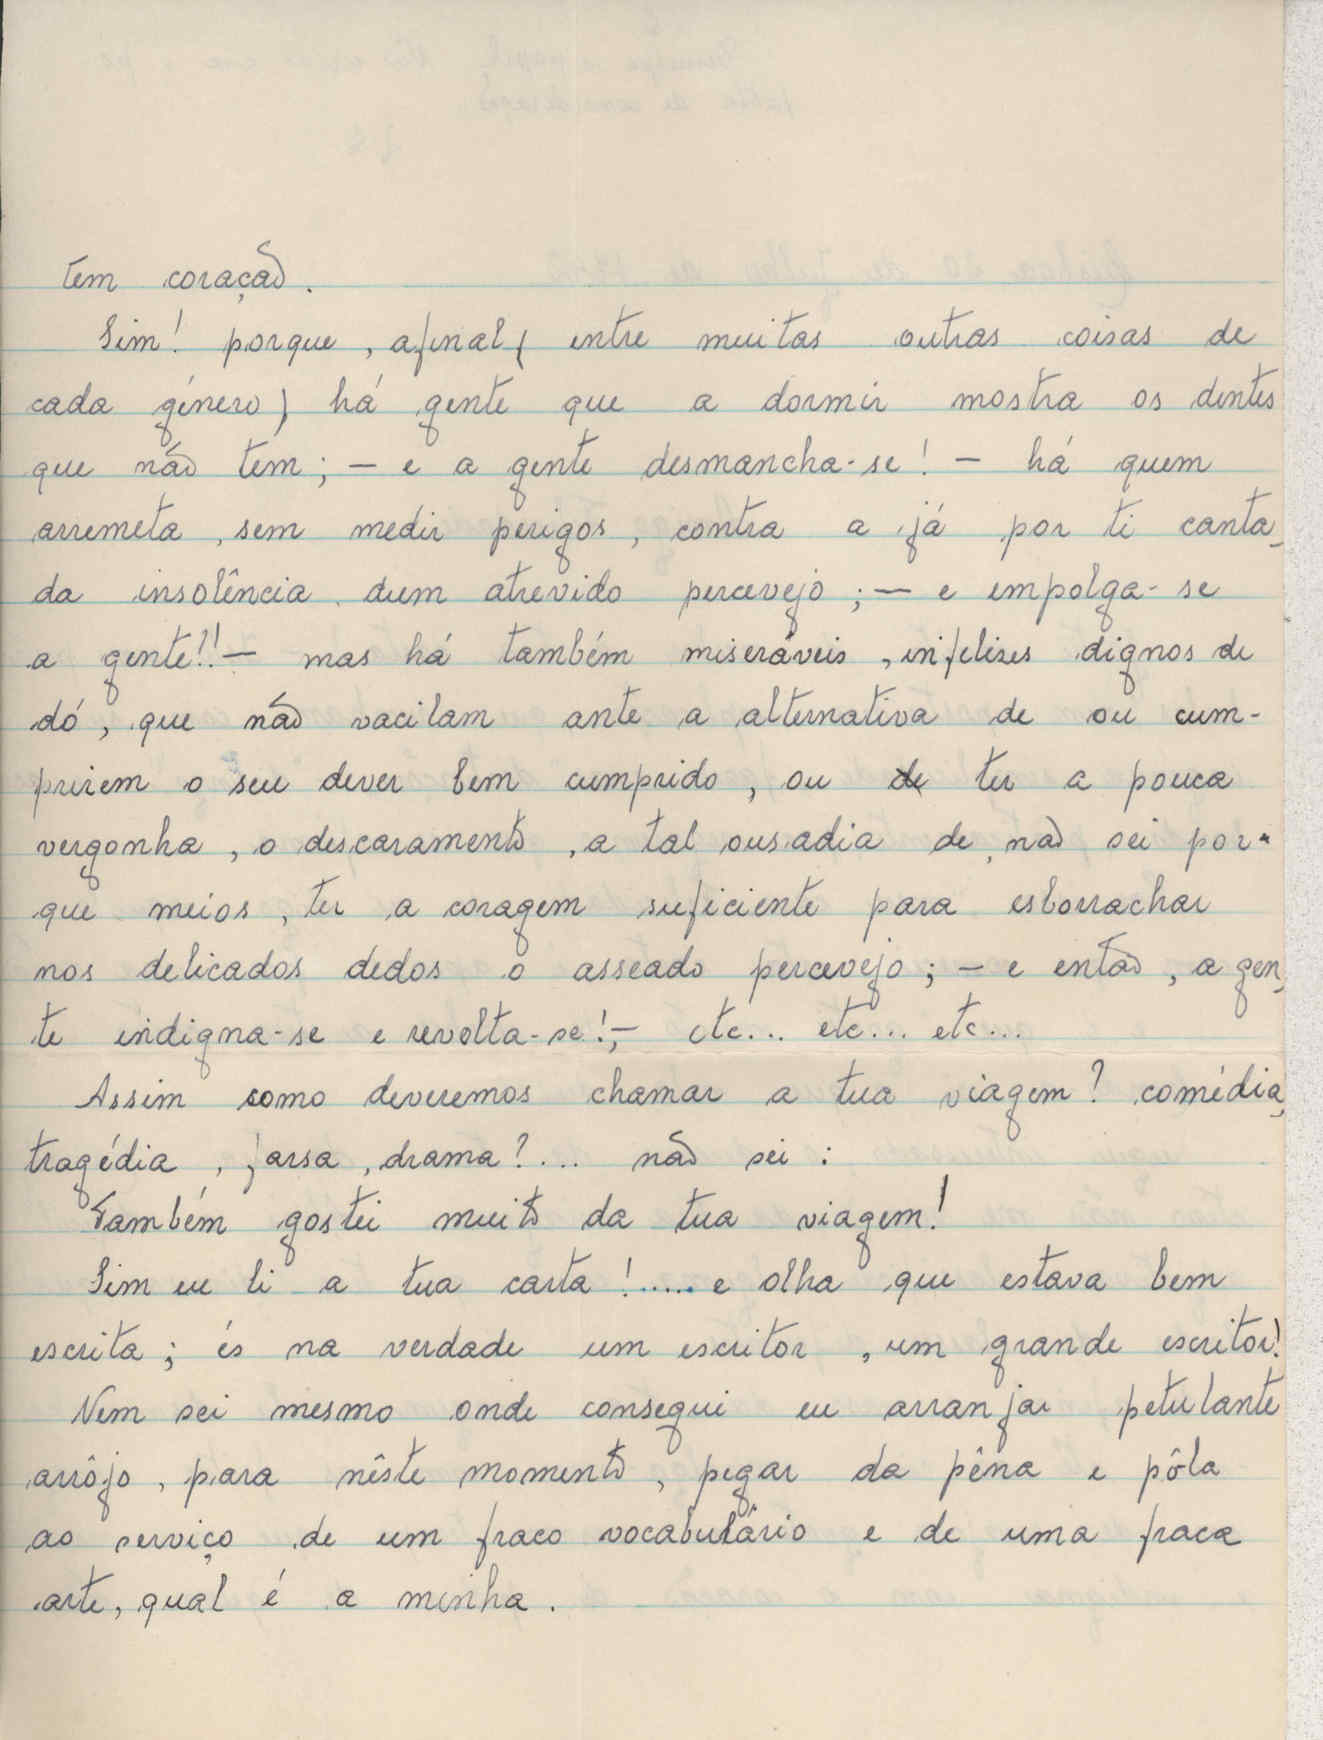 tem coração.
Sim! porque, afinal, (entre muitas outras coisas de
cada género) há gente que a dormir mostra os dentes
que não tem; — e a gente desmancha-se! — há quem
arremeta, sem medir perigos, contra a já por ti canta-
da insolência dum atrevido percevejo; — e empolga-se
a gente!! — mas há também miseráveis, infelizes dignos de
dó, que não vacilam ante a alternativa de ou cum-
prirem o seu dever bem cumprido, ou de ter a pouca
vergonha, o descaramento, a tal ousadia de, não sei por-
que meios, ter a coragem suficiente para esborrachar
nos delicados dedos o asseado percevejo; — e então, a gen-
te indigna-se e revolta-se!; — etc... etc... etc...
Assim como deveremos chamar a tua viagem? comédia,
tragédia, farsa, drama?... não sei:
Também gostei muito da tua viagem!
Sim eu li a tua carta!..... e olha que estava bem
escrita; és na verdade um escritor, um grande escritor!
Nem sei mesmo onde consegui eu arranjar petulante
arrôjo, para nêste momento, pegar da pêna e pôla
ao serviço de um fraco vocabulário e de uma fraca
arte, qual é a minha.